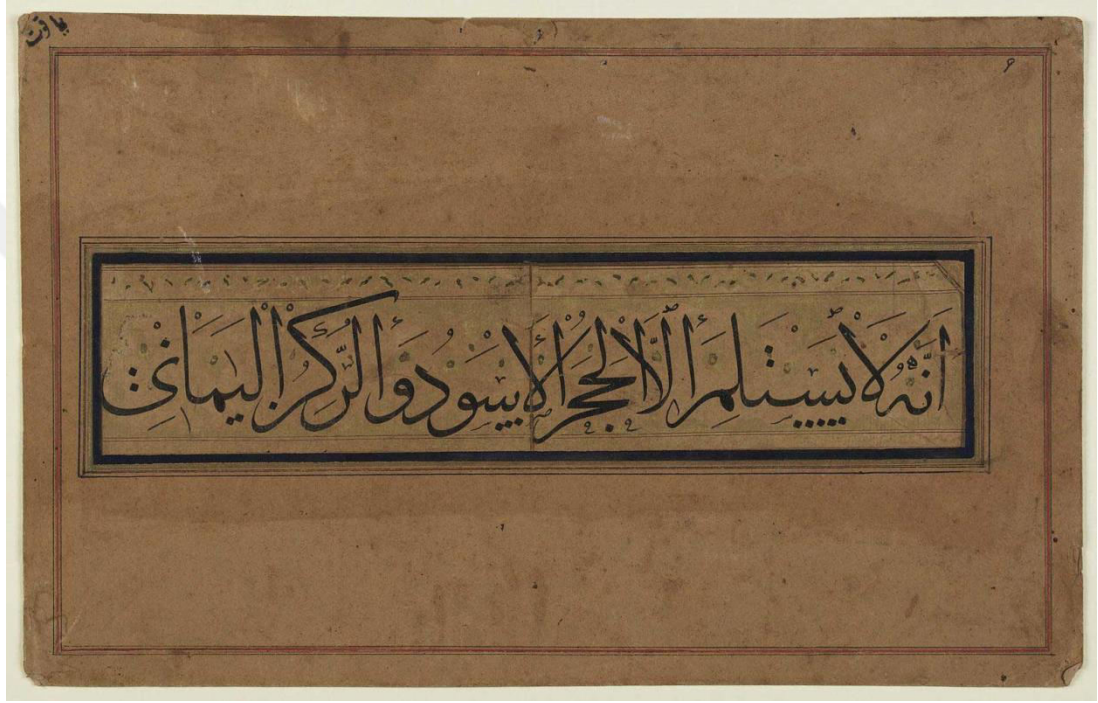 ياقوت
٩
اَنَّهُ لَا يَسْتَلِمُ اِلَّا الْحَجَرَ الْاَسْوَدَ وَالرُّكْنَ الْيَمَانِيَ